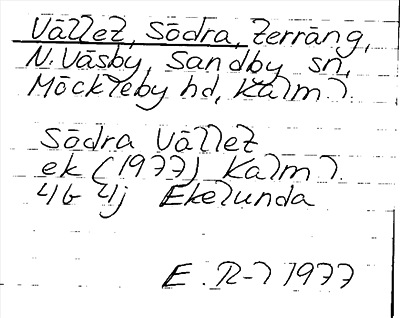 Vället, Södra, terräng,
N. Väsby, Sandby sn,
Möckleby hd, Kalm l.
Södra Vället
ek (1977) Kalm l.
4G 4j Ekelunda
E. R-l 1977